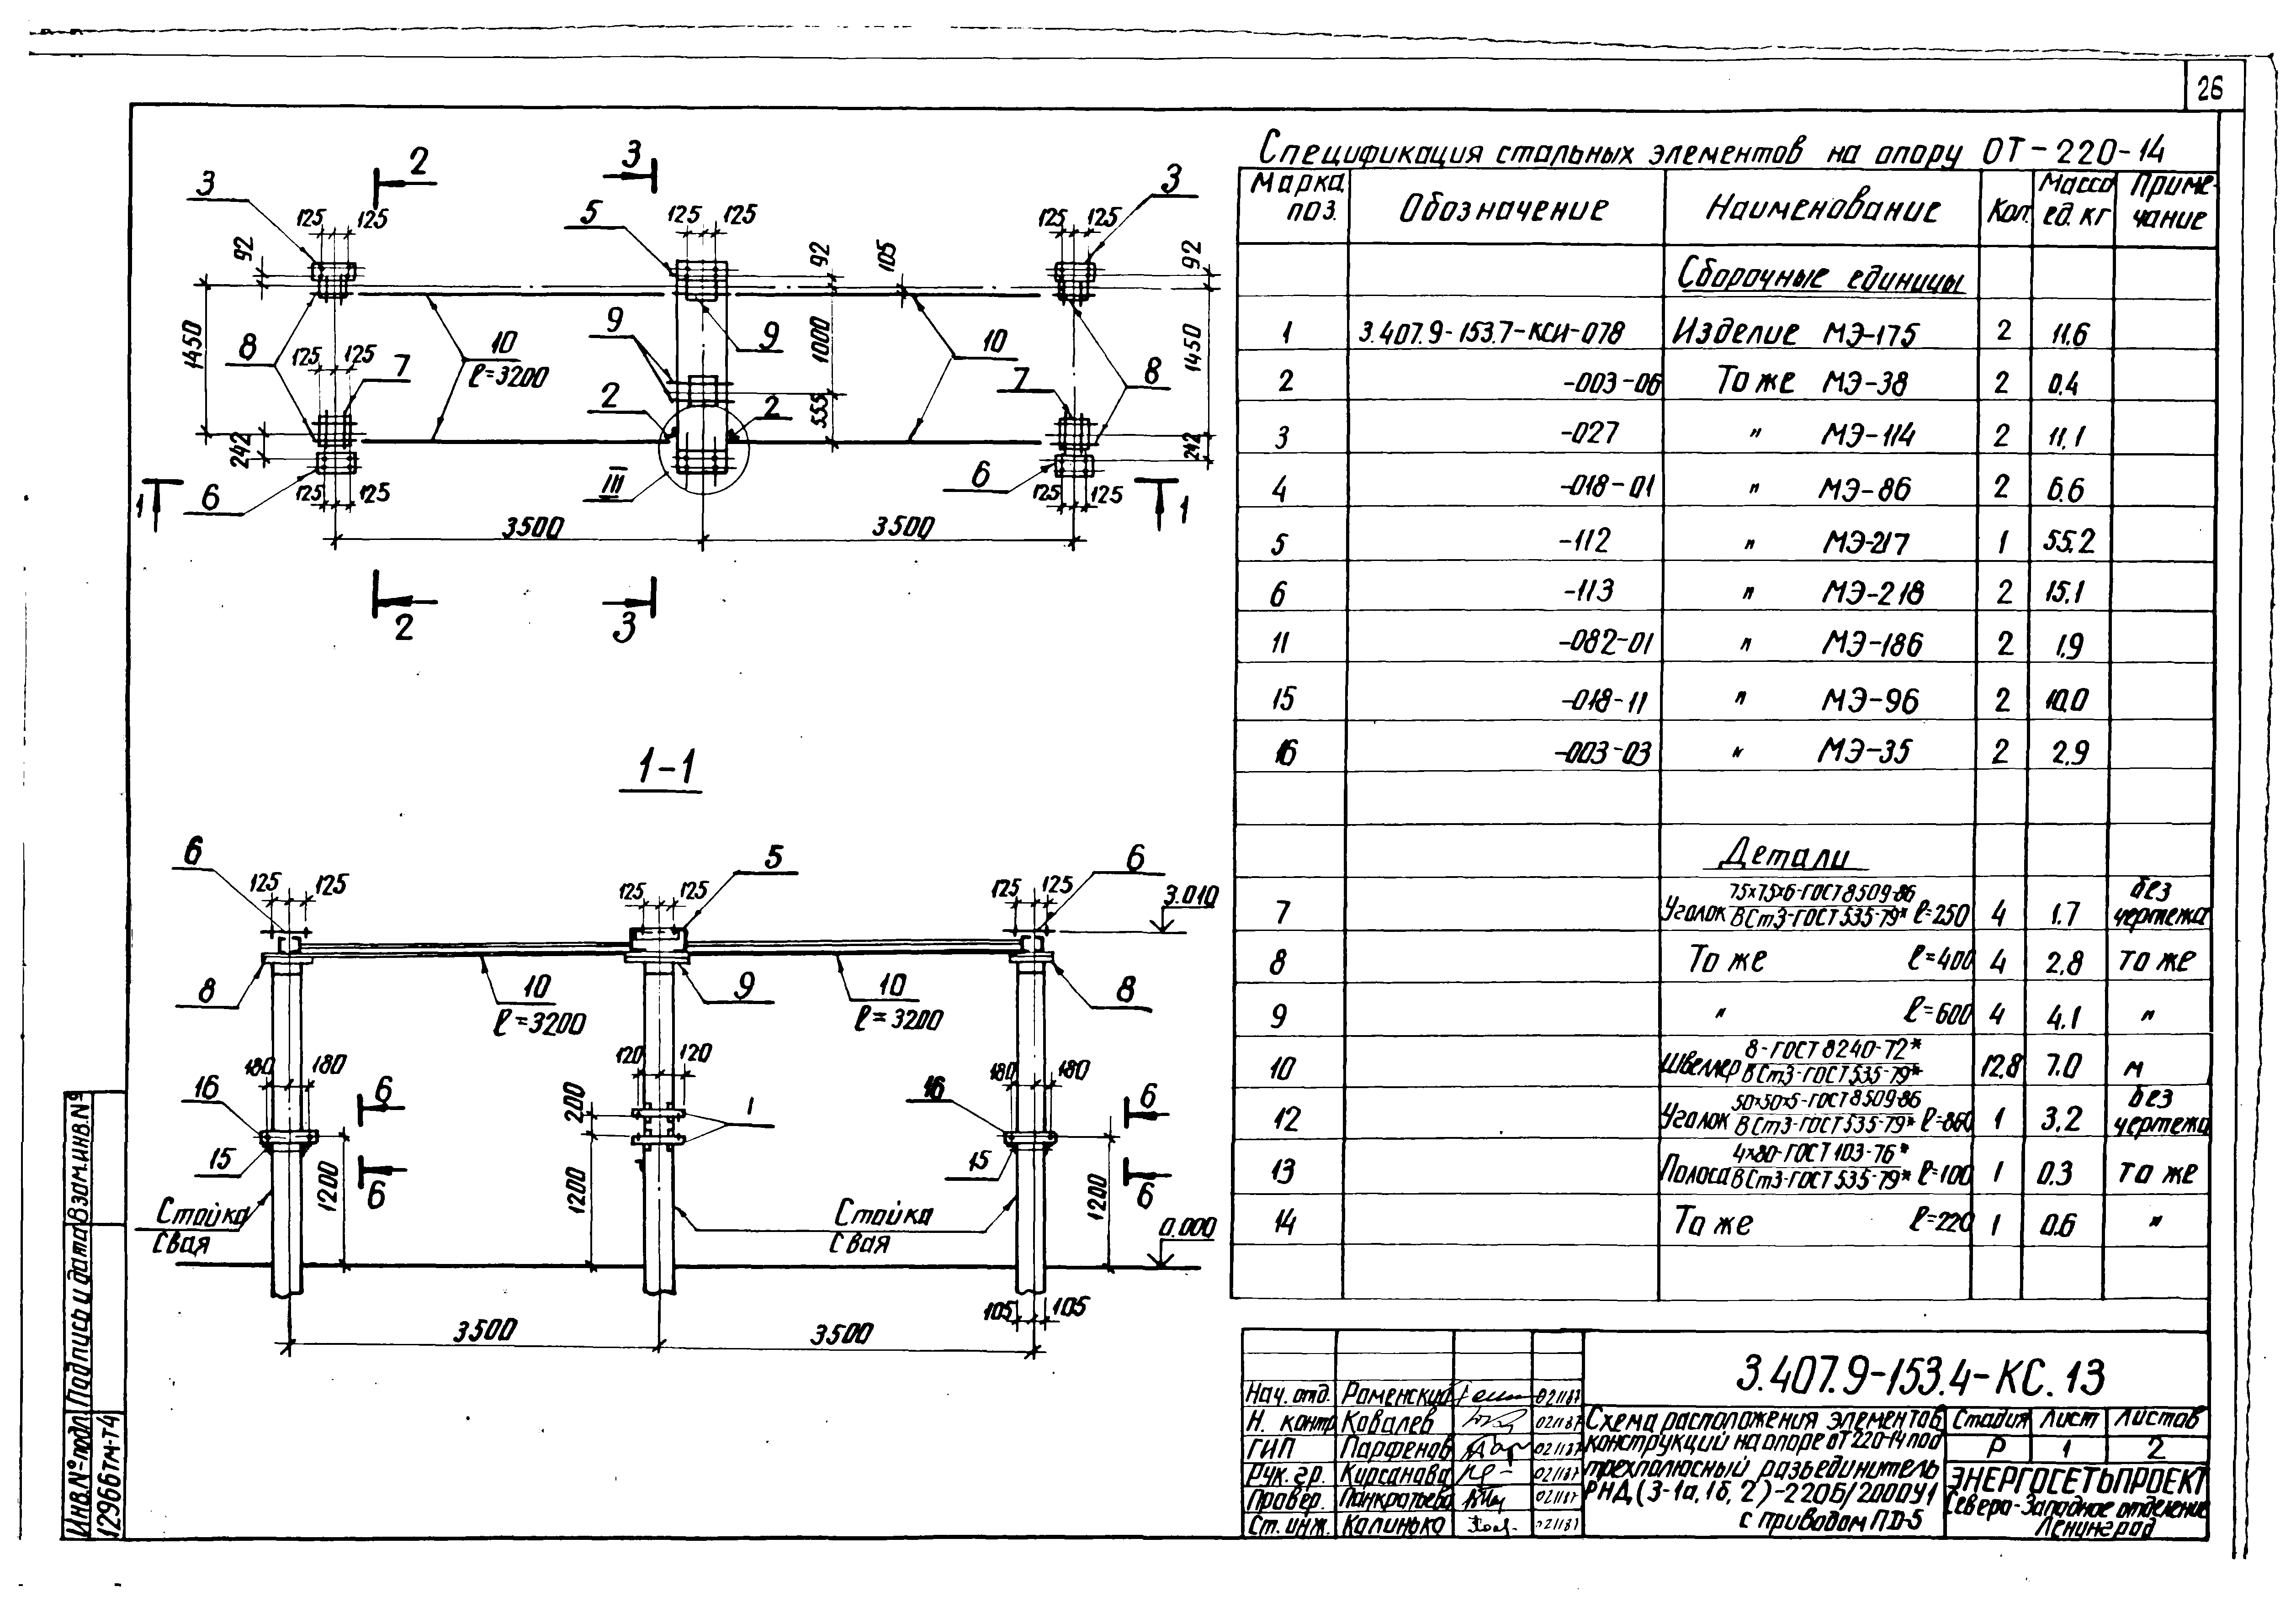 26
Спецификация стальных элементов на опору ОТ-220-14
Марка поз. Обозначение Наименование Кол. Масса ед. кг Примечание
Сборочные единицы
1 3.407.9-153.7-КСИ-078 Изделие МЭ-175 2 11.6
2 -003-06 То же МЭ-38 2 0.4
3 -027 " МЭ-114 2 11.1
4 -018-01 " МЭ-86 2 6.6
5 -112 " МЭ-217 1 55.2
6 -113 " МЭ-218 2 15.1
11 -082-01 " МЭ-186 2 1.9
15 -018-11 " МЭ-96 2 10.0
16 -003-03 " МЭ-35 2 2.9
Детали
7 Уголок 75×75×6-ГОСТ 8509-86 / ВСт3-ГОСТ 535-79* ℓ=250 4 1.7 без чертежа
8 То же ℓ=400 4 2.8 то же
9 " ℓ=600 4 4.1 "
10 Швеллер 8-ГОСТ 8240-72* / ВСт3-ГОСТ 535-79* 12.8 7.0 м
12 Уголок 50×50×5-ГОСТ 8509-86 / ВСт3-ГОСТ 535-79* ℓ=860 1 3.2 без чертежа
13 Полоса 4×80-ГОСТ 103-76* / ВСт3-ГОСТ 535-79* ℓ=100 1 0.3 то же
14 То же ℓ=220 1 0.6 "
2 3
3 5 3
125 125 125 125 125 125
92 92 105 92
1450 1000 1450
8 10 9 9 10 8
ℓ=3200
125 125 7 2 2 7
242 555 242
6 III 6
125 125 125 125
1 1
3500 3500
2 3
1-1
6 5 6
125 125 125 125 125 125
3.010
8 10 9 10 8
ℓ=3200 ℓ=3200
180 180 120 120 180 180
16 6 200 1 16 6
15 6 15 6
1200 1200 1200
Стойка Стойка
Свая Свая
0.000
105 105
3500 3500
3.407.9-153.4-КС.13
Нач. отд. Роменский 021187
Н. контр Ковалев 021187
ГИП Парфенов 021187
Рук. гр. Кирсанова 021187
Провер. Панкратьева 021187
Ст. инж. Калинько 021187
Схема расположения элементов
конструкций на опоре ОТ 220-14 под
трехполюсный разъединитель
РНД(3-1а, 1б, 2)-220Б/2000У1
с приводом ПД-5
Стадия Лист Листов
Р 1 2
ЭНЕРГОСЕТЬПРОЕКТ
Северо-Западное отделение
Ленинград
Инв.№подл. Подпись и дата Взам.инв.№
12966тм-т4